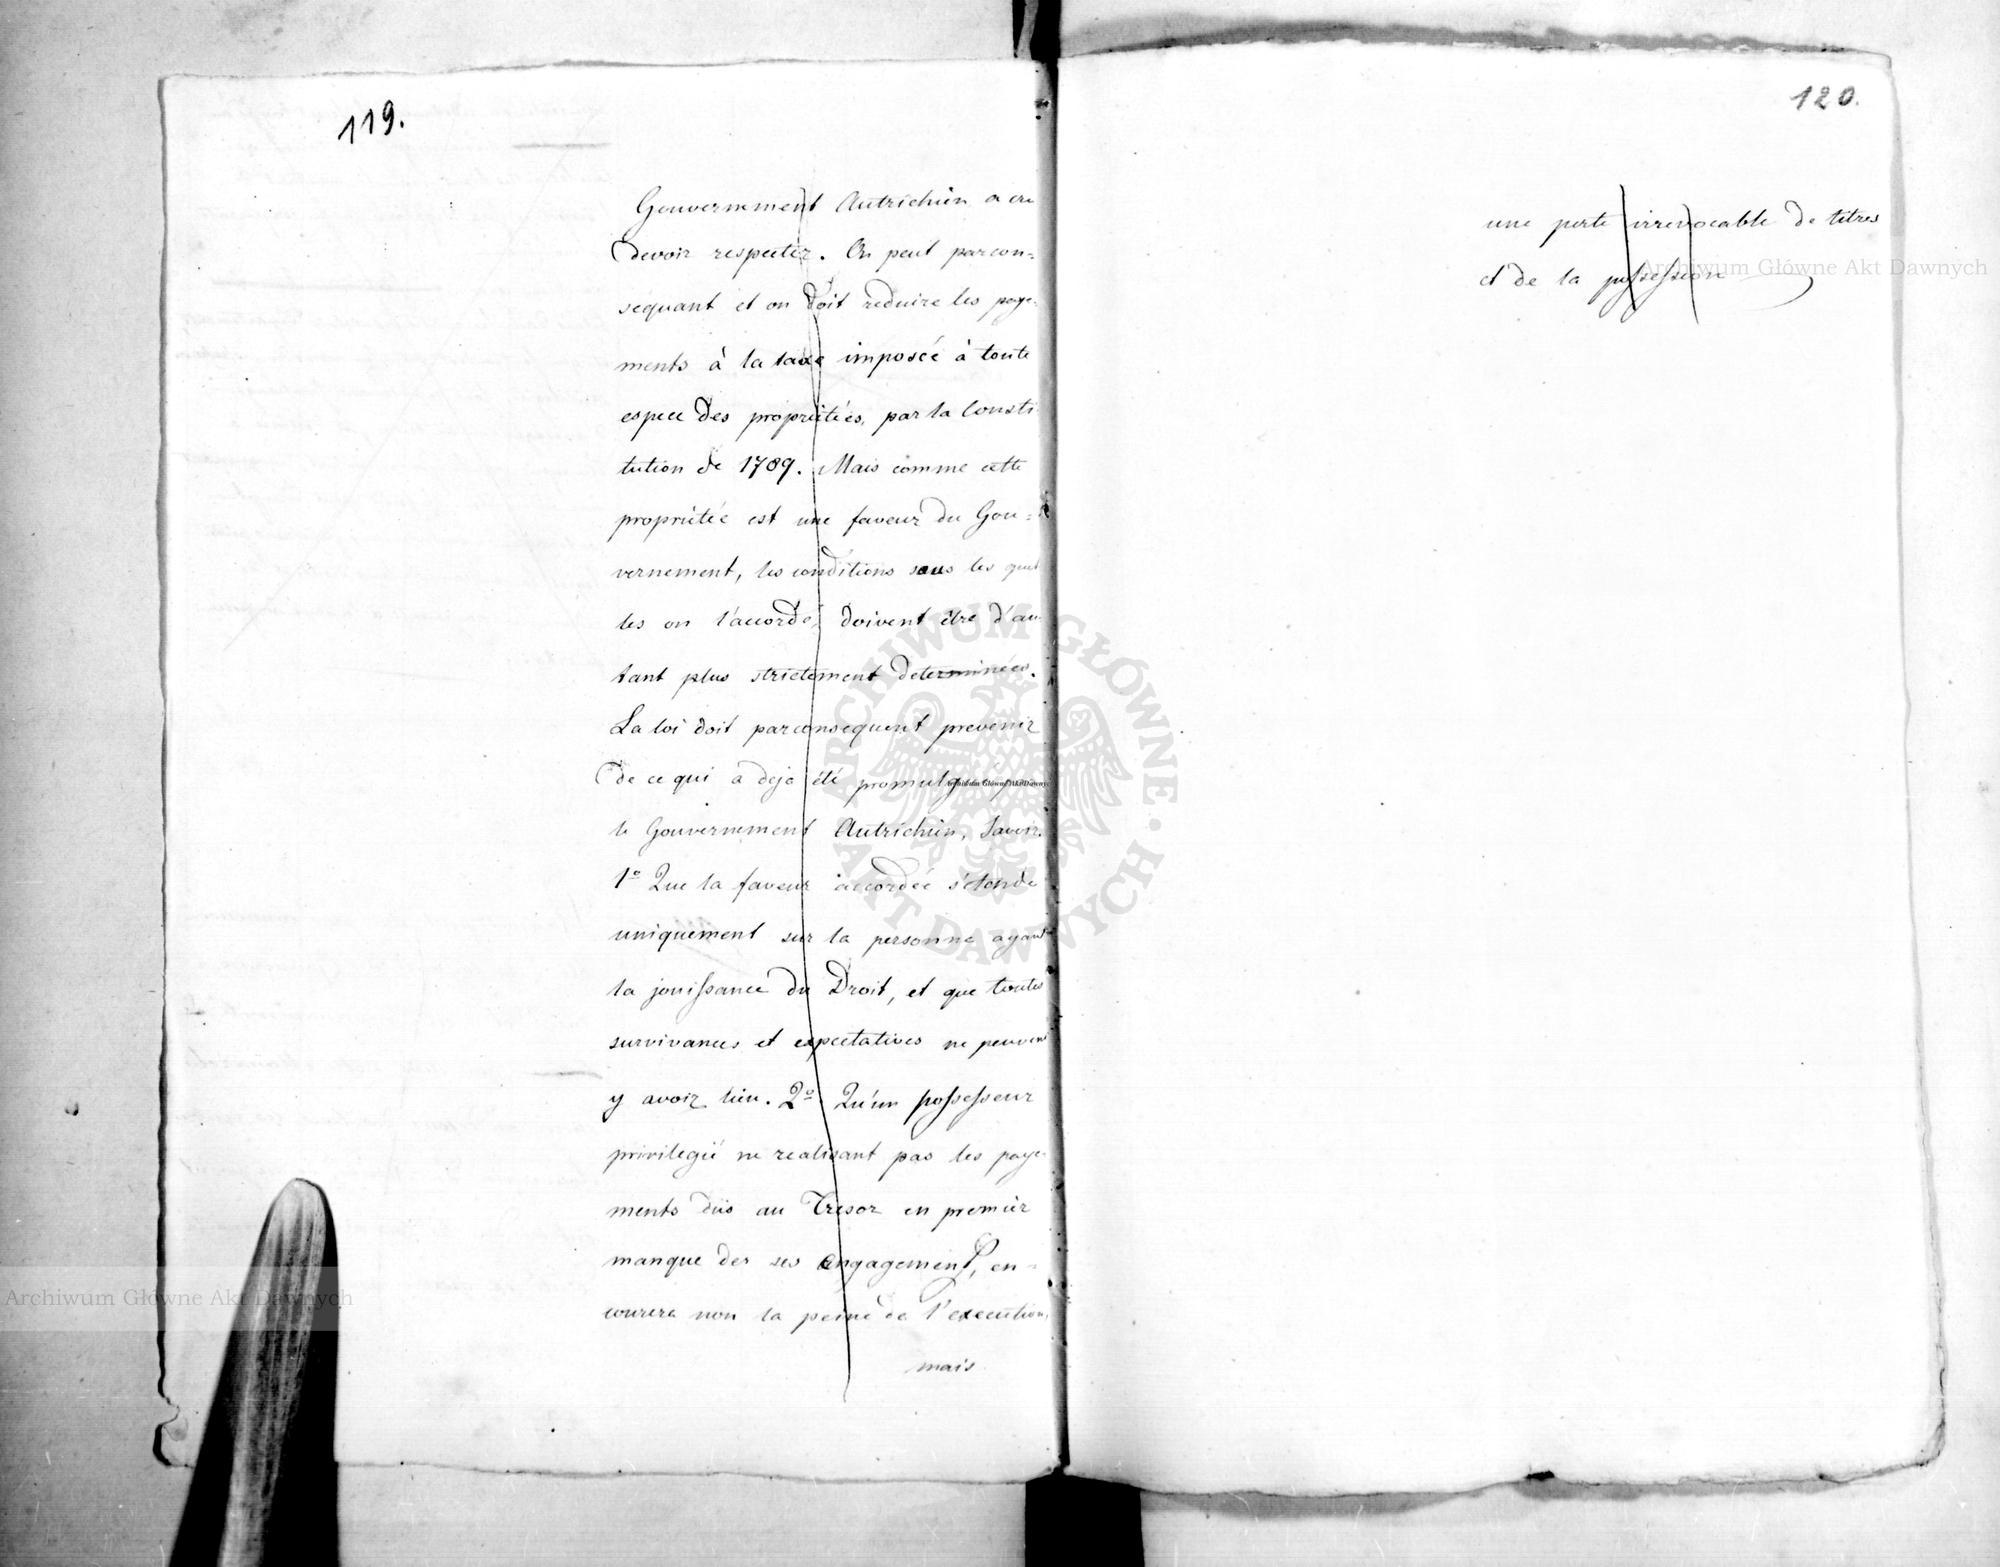 119.
Gouvernement Autrichien a cru
devoir respecter. On peut parcon=
sequant et on doit reduire les paye=
ments à la taxe imposée à toute
espece des propriétées, par la Consti
tution de 1789. Mais comme cette
propriétée est une faveur du Gou=
vernement, les conditions sous les quel
les on l'accorde, doivent être d'au
tant plus strictement determinées.
La loi doit parconsequent prevenir
de ce qui a deja été promulgué
le Gouvernement Autrichien, Savoir.
1º Que la faveur accordée s'étende
uniquement sur la personne ayant
la jouissance du Droit, et que toutes
survivances et expectatives ne peuvent
y avoir lieu. 2º Qu'un possesseur
privilegié ne realisant pas les paye-
ments dûs au Tresor en premier
manque der ses engagement, en=
courera non la peine de l'execution,
mais
120.
une perte irrevocable de titres
et de la possession
Archiwum Główne Akt Dawnych
ARCHIWUM GŁÓWNE AKT DAWNYCH
Archiwum Główne Akt Dawnych
Archiwum Główne Akt Dawnych